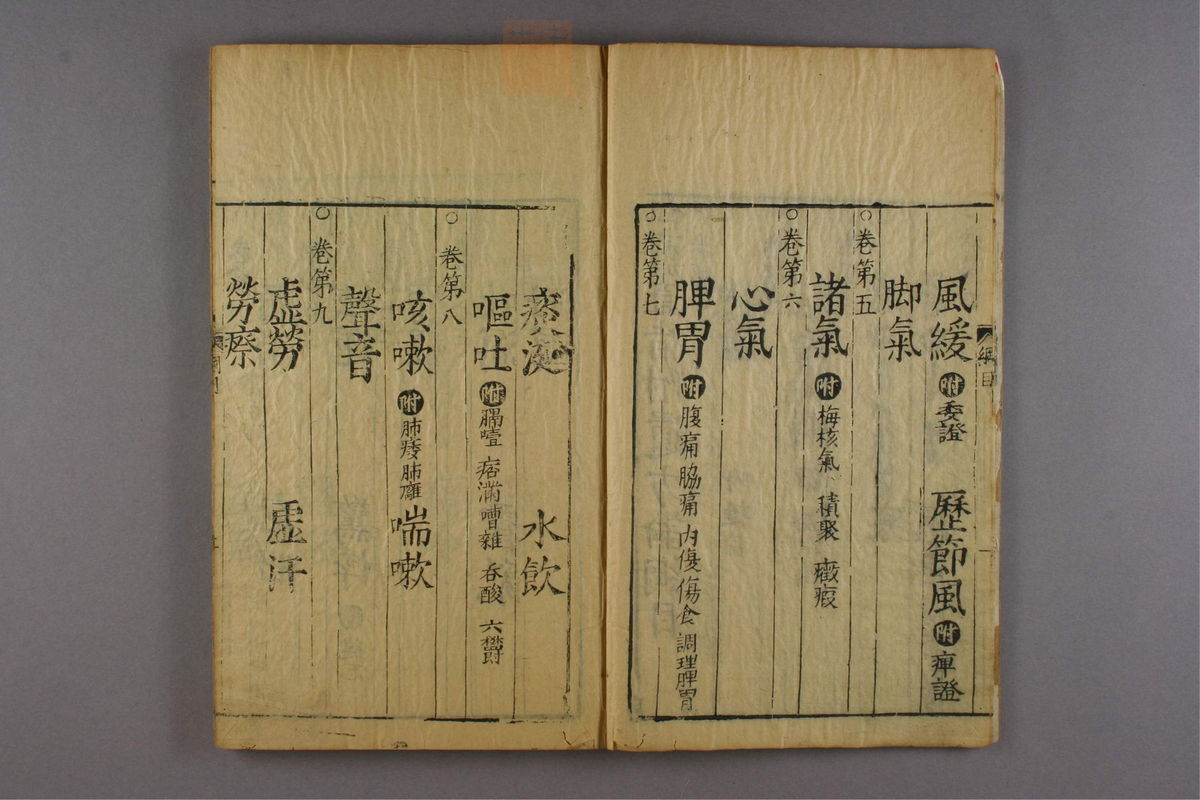 綱目
風緩 附 委證 歷節風 附 痺證
脚氣
○卷第五
諸氣 附 梅核氣、積聚 癥瘕
○卷第六
心氣
脾胃 附 腹痛 脇痛 内傷 傷食 調理脾胃
○卷第七
痰涎 水飲
嘔吐 附 膈噎 痞滿 嘈雜 吞酸 六欝
○卷第八
咳嗽 附 肺痿 肺癰 喘嗽
聲音
○卷第九
虛勞 虛汗
勞瘵